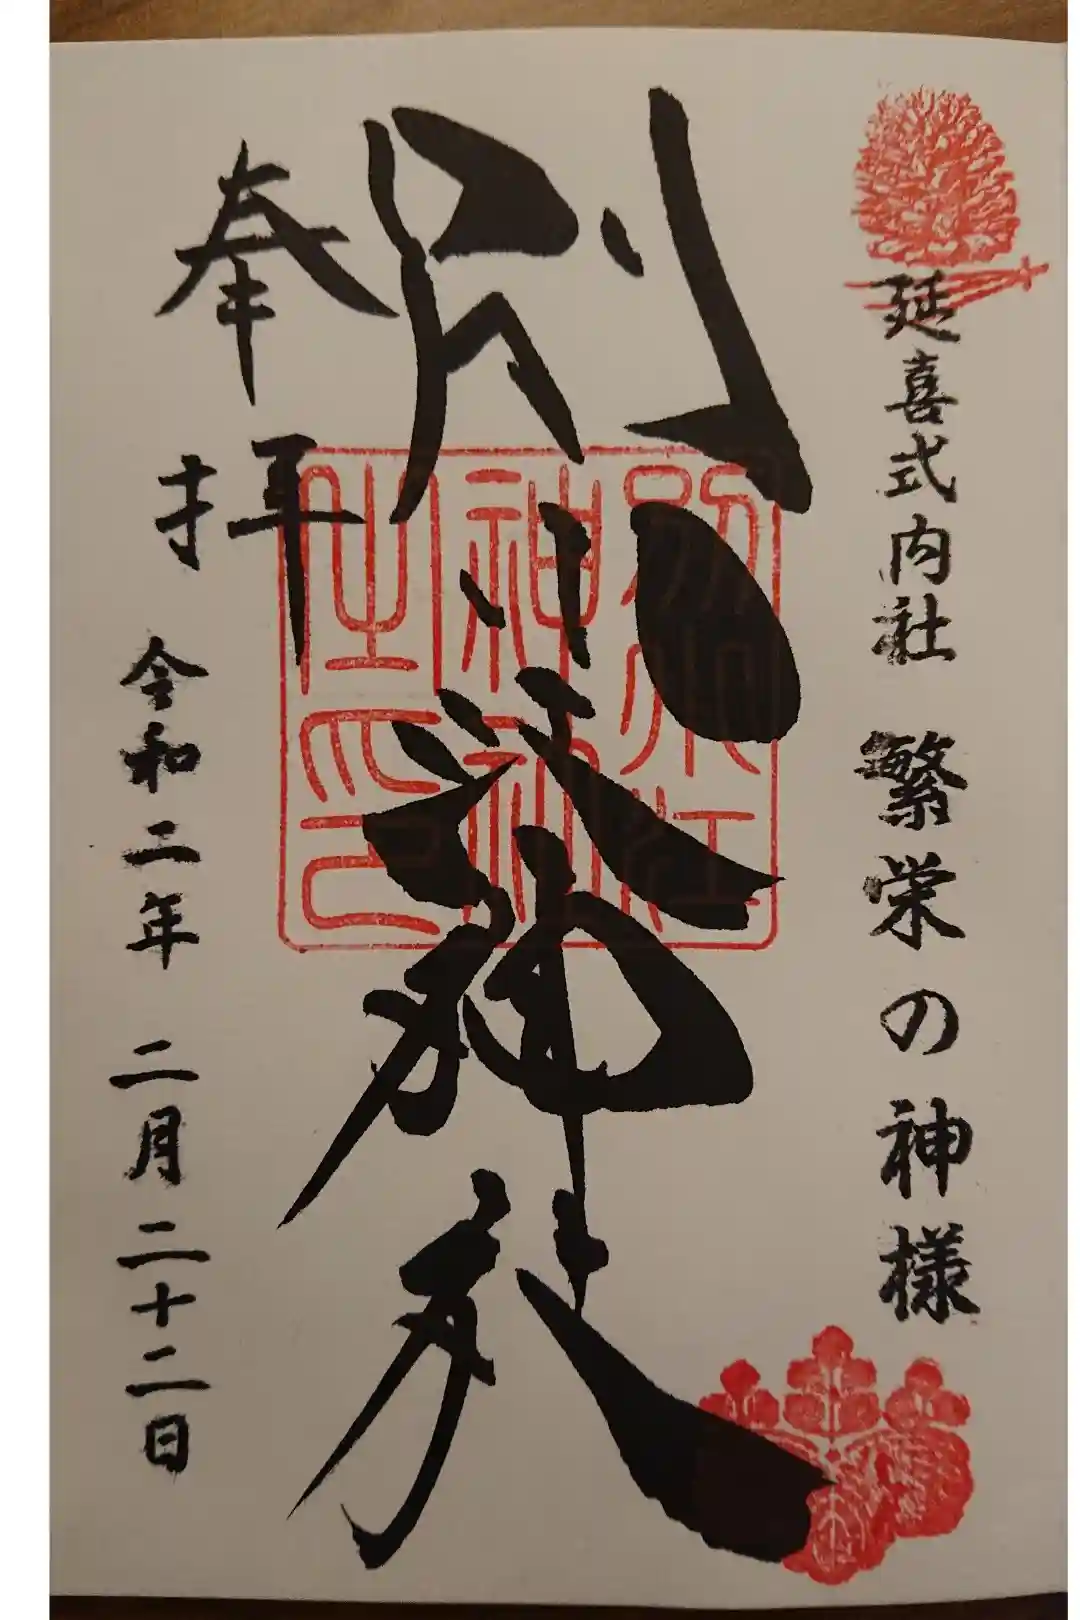 延喜式内社 繁栄の神様
別小江神社
別小江
神社
之印
奉拝
令和二年 二月二十二日